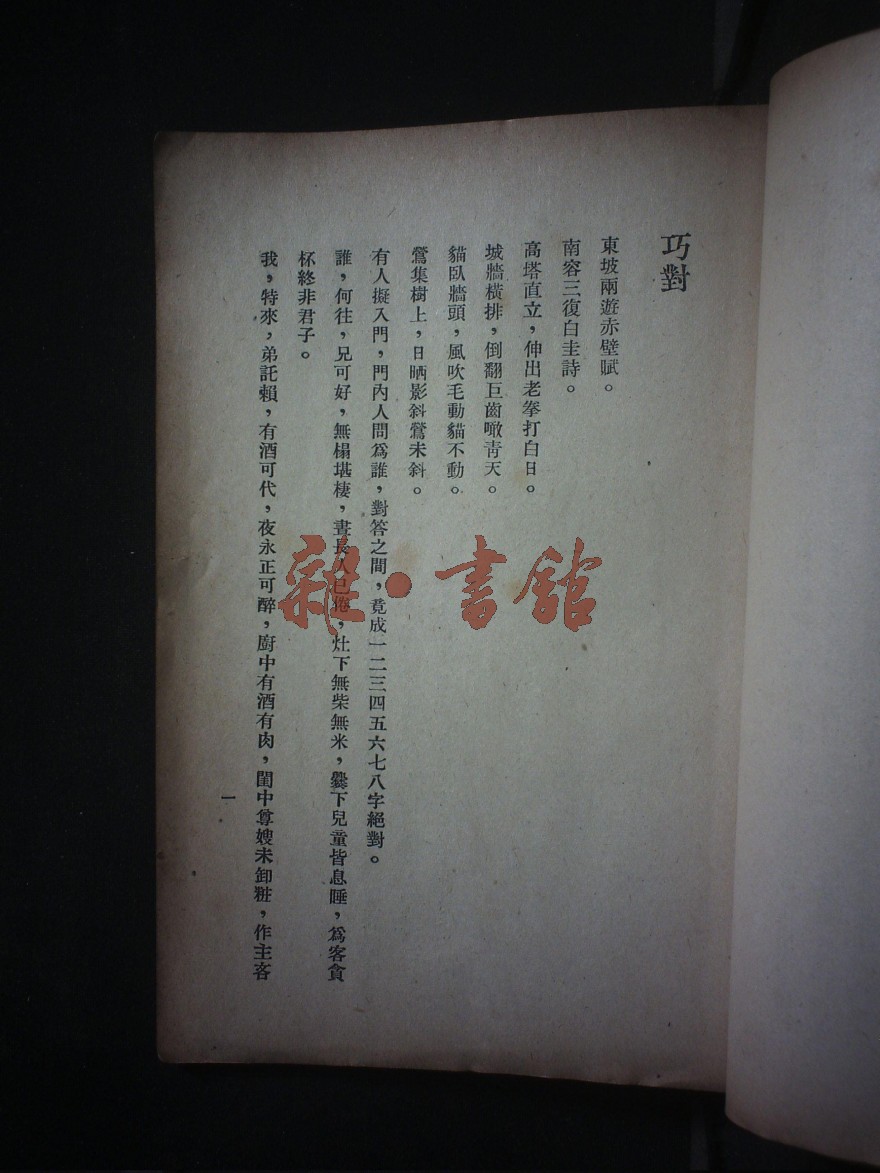 巧對
東坡兩遊赤壁賦。
南容三復白圭詩。
高塔直立，伸出老拳打白日。
城牆橫排，倒翻巨齒噉靑天。
貓臥牆頭，風吹毛動貓不動。
鶯集樹上，日晒影斜鶯未斜。
有人擬入門，門內人問爲誰，對答之間，竟成一二三四五六七八字絕對。
誰，何往，兄可好，無榻堪棲，晝長人已倦，灶下無柴無米，爨下兒童皆息睡，爲客貪
杯終非君子。
我，特來，弟託賴，有酒可代，夜永正可醉，廚中有酒有肉，閨中尊嫂未卸粧，作主吝
一
雜·書館